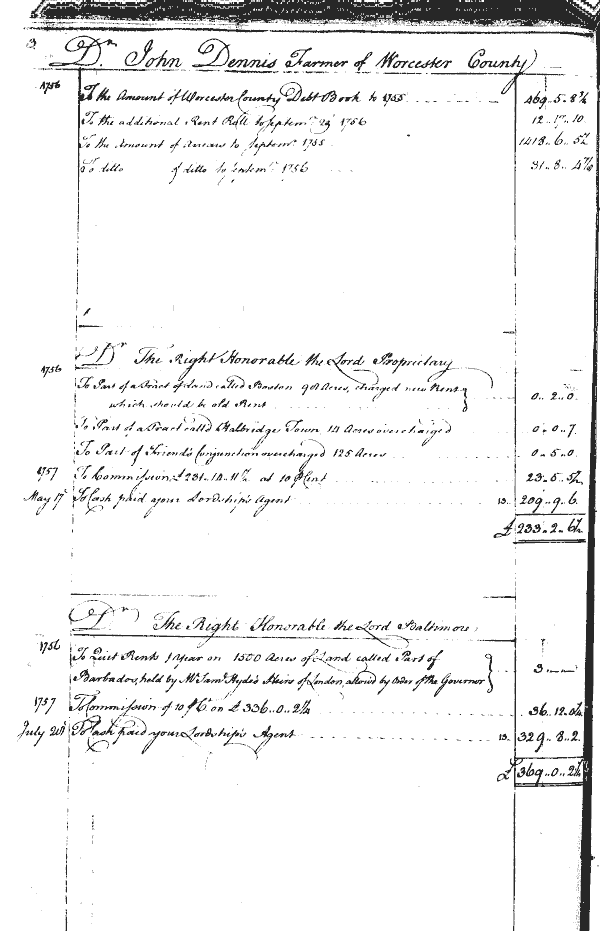 3
Dr. John Dennis Farmer of Worcester County
1756 To the Amount of Worcester County Debt Book to 1755 469..5..8¾
To the additional Rent Roll to Septemr. 29 1756 12..17..10
To the Amount of Arrears to Septemr. 1755 1418..6..5½
To ditto of ditto to Septemr. 1756 31..8..4
Dr The Right Honorable the Lord Proprietary
1756 To Part of a Tract of Land called Boston 98 Acres, charged new Rent
which should be old Rent 0..2..0
To Part of a Tract called Town 14 Acres overcharged 0..0..7
To Part of Friend's Conjunction overcharged 125 Acres 0..5..0
1757 To Commission £231..14..11½ at 10 P Cent 23..5..5½
May 17 To Cash paid your Lordship's Agent 13. 209..9..6
£ 233..2..6½
Dr The Right Honorable the Lord Baltimore
1756 To Quit Rents 1 Year on 1500 Acres of Land called Part of
Barbados, held by Mr. Saml. Hyde's Heirs of London, allowed by Order of the Governor 3..—..—
1757 To Commission of 10 P Ct on £336..0..2¼ 36..12..0¼
July 24 To Cash paid your Lordship's Agent 13. 329..8..2
£ 369..0..2¼